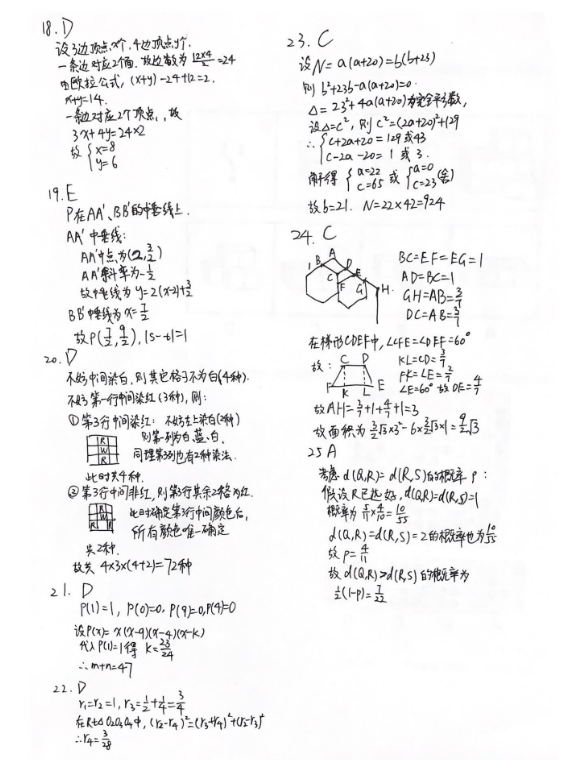 18. D
设3边顶点x个,4边顶点y个.
一条边对应2个面. 故边数为 (12×4)/2 = 24
由欧拉公式, (x+y) -24+12=2.
x+y=14.
一条边对应2个顶点, 故
3x+4y=24×2
故 { x=8
y=6
19. E
P在AA'、BB'的中垂线上.
AA'中垂线:
AA'中点为(2, 3/2)
AA'斜率为-1/2
故中垂线为 y=2(x-2)+3/2
BB'中垂线为 x=7/2
故P(7/2, 9/2), |s-t|=1
20. D
不妨中间染白, 则其它格子不为白(4种).
不妨第一行中间染红(3种), 则:
①第3行中间染红: 不妨左上染白(2种)
R
W
R
则第一列为白、蓝、白.
同理第3列也有2种染法.
此时共4种.
②第3行中间非红, 则第3行其余2格为红.
R
W
R R
此时确定第3行中间颜色后,
所有颜色唯一确定
共2种.
故共 4×3×(4+2)=72种
21. D
P(1)=1, P(0)=0, P(9)=0, P(4)=0
设P(x)= x(x-9)(x-4)(x-k)
代入P(1)=1得 k=23/24
∴m+n=47
22. D
r₁=r₂=1, r₃=1/2+1/4=3/4
∴r₄=3/28
23. C
设N=a(a+20)=b(b+23)
则 b²+23b-a(a+20)=0.
Δ=23²+4a(a+20)为完全平方数,
设Δ=c², 则 c²=(2a+20)²+129
∴ { c+2a+20=129或43
c-2a-20=1 或 3.
解得 { a=22 c=65 或 { a=0 c=23 (舍)
故b=21. N=22×42=924
24. C
B A
C D E
F G H
BC=EF=EG=1
AD=BC=1
GH=AB=3/7
DC=AB=3/7
在梯形CDEF中, ∠CFE=∠DEF=60°
故:
C D
F K L E
KL=CD=3/7
FK=LE=2/7
∠E=60° 故DE=4/7
故AH=3/7+1+4/7+1=3
故面积为 3/2√3×3²-6×3/2√3×1=9/2√3
25 A
考虑 d(Q,R)=d(R,S)的概率 p:
假设R已选好, d(Q,R)=d(R,S)=1
概率为 5/11×4/10=10/55
d(Q,R)=d(R,S)=2的概率也为10/55
故 p=4/11
故 d(Q,R)>d(R,S)的概率为
1/2(1-p)=7/22